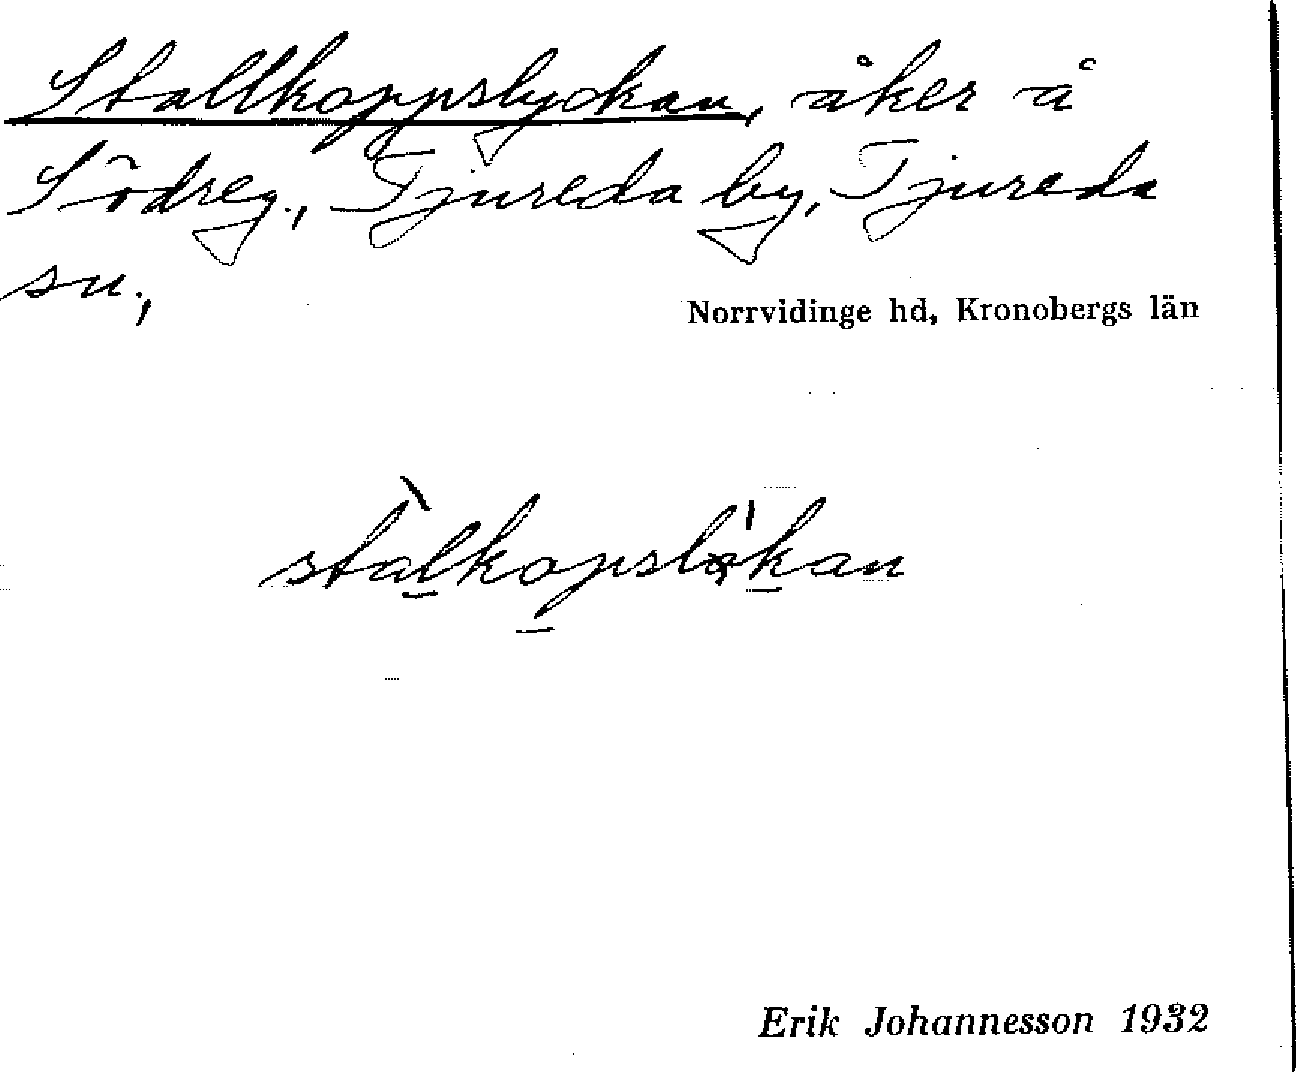 Stallkoppslyckan, åker å
Södreg., Tjureda by, Tjureda
sn.,
Norrvidinge hd, Kronobergs län
stàlkopslø̍kan
Erik Johannesson 1932